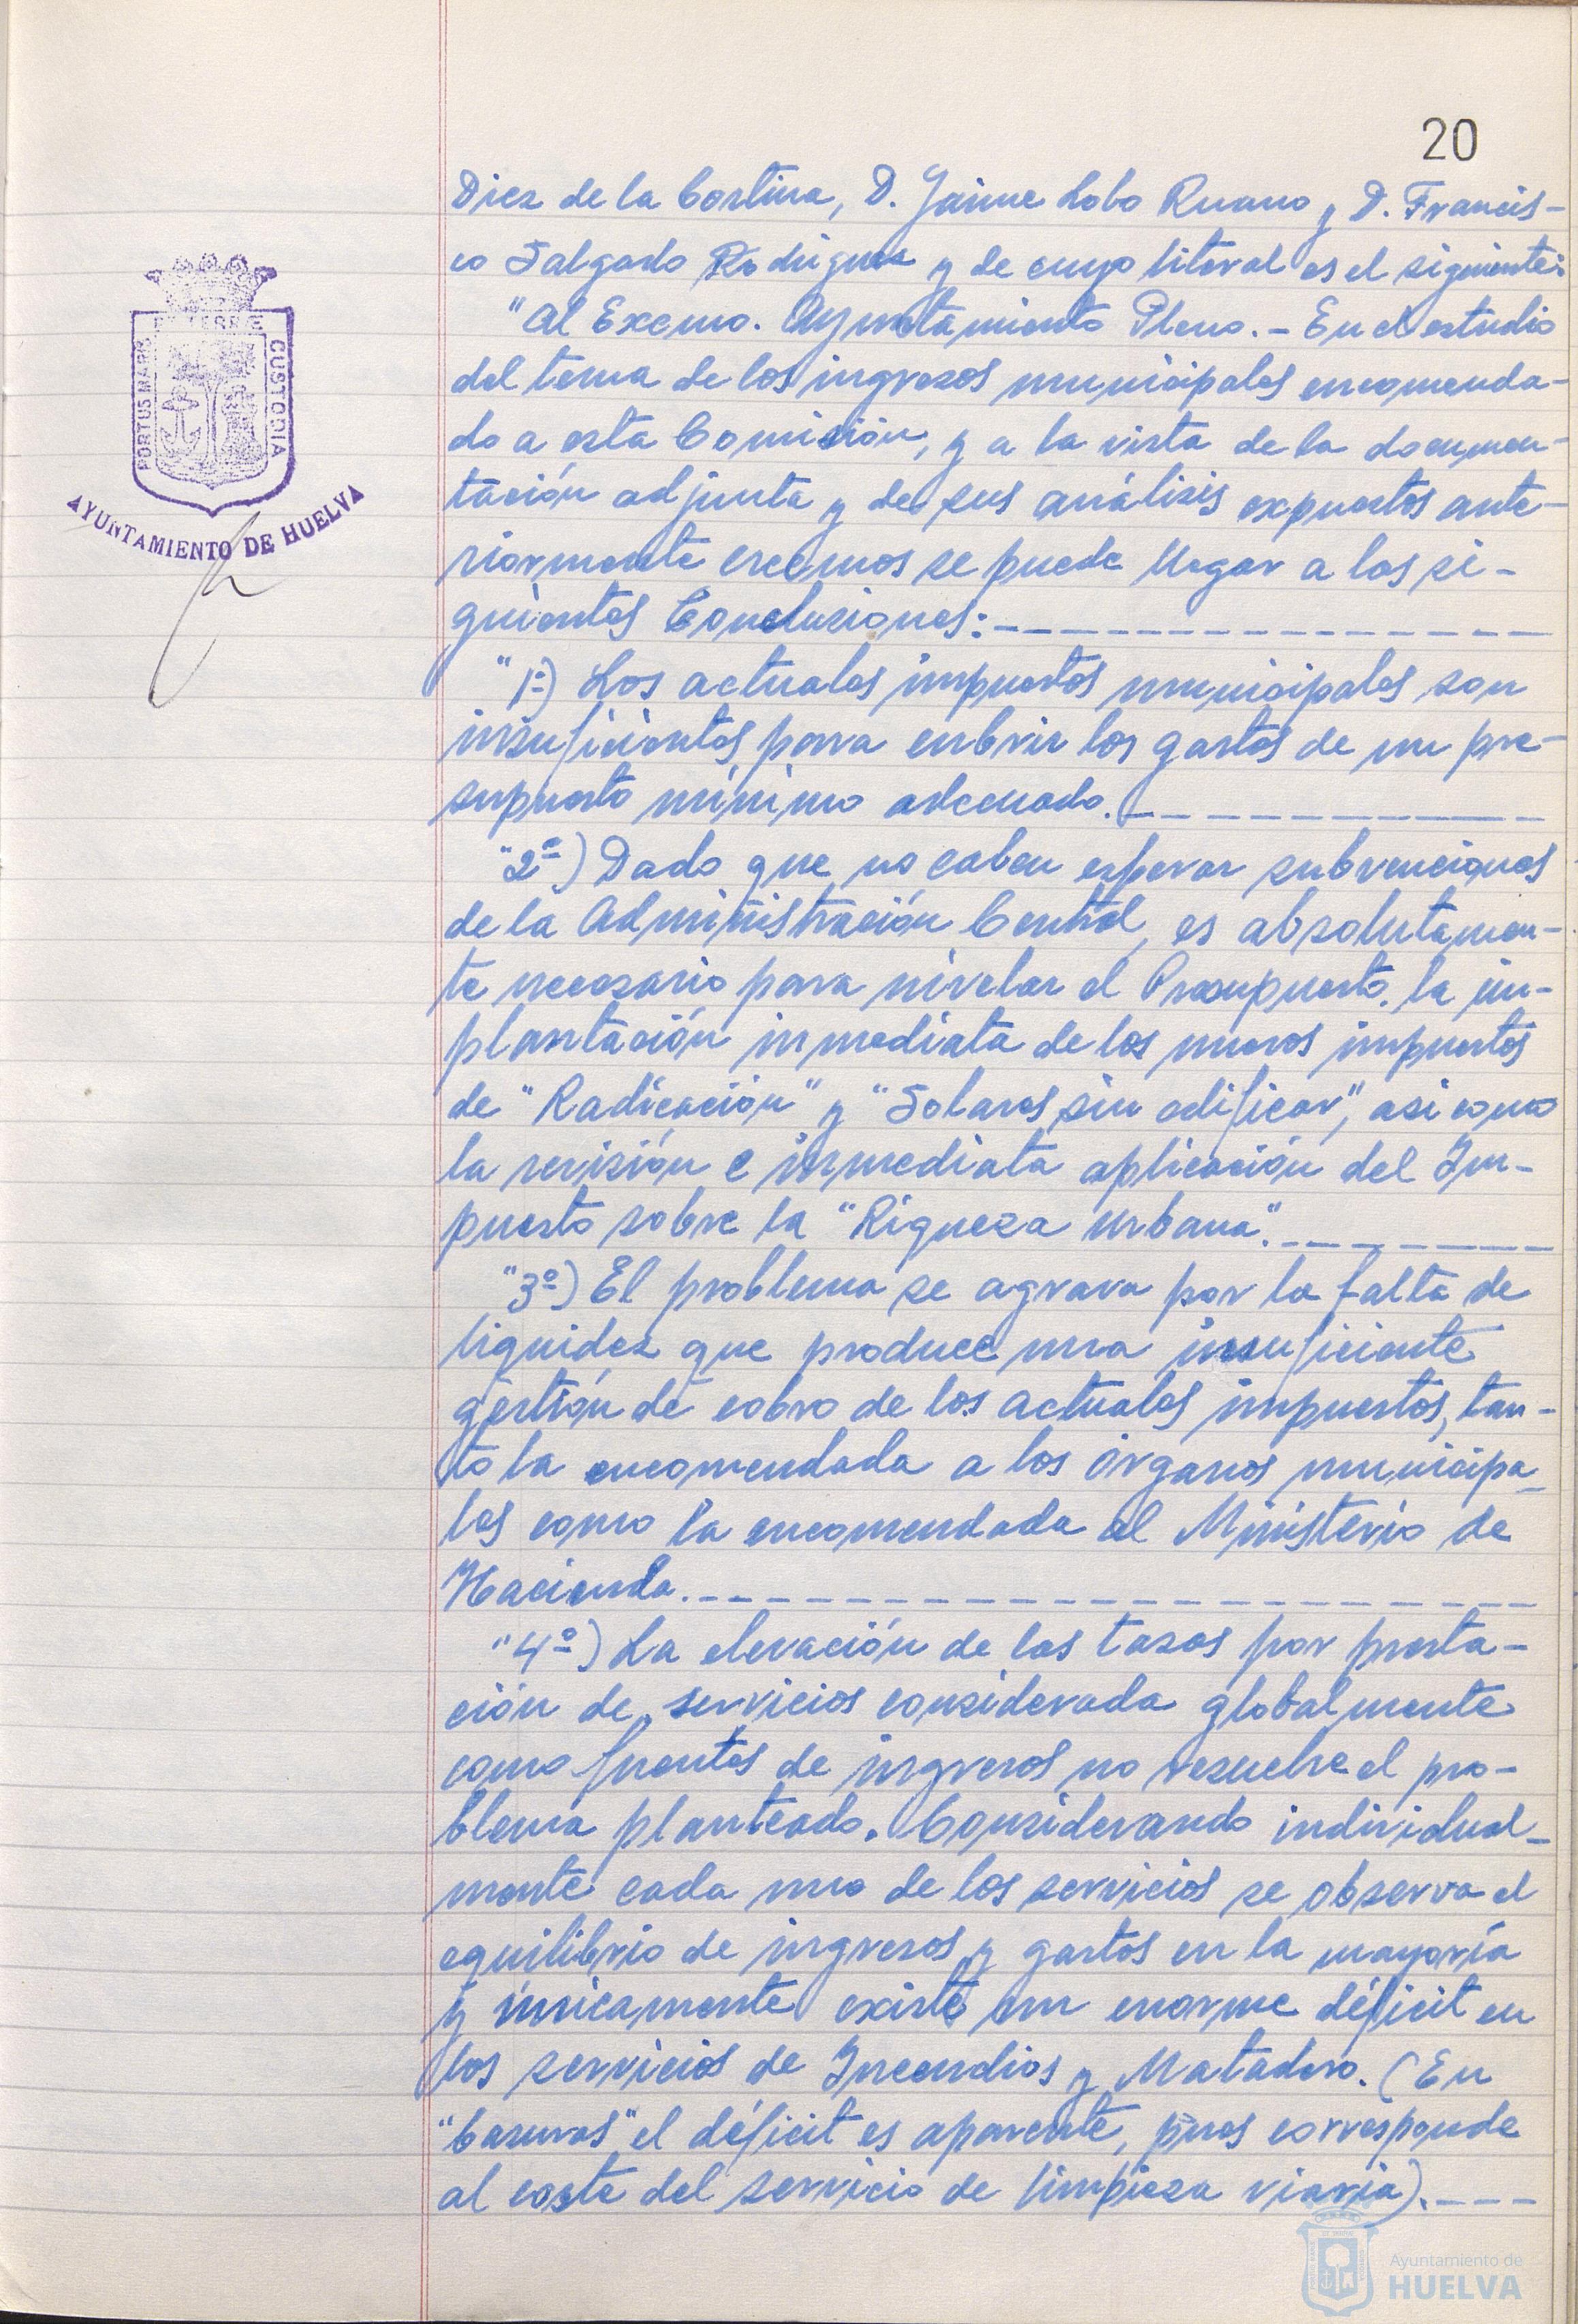 20
Diez de la Cortina, D. Jaime Lobo Ruano y D. Francis-
co Salgado Rodriguez y de cuyo literal es el siguiente:
"Al Excmo. Ayuntamiento Pleno.- En el estudio
del tema de los ingresos municipales encomenda-
do a esta Comisión, y a la vista de la documen-
tación adjunta y de sus análisis expuestos ante-
riormente creemos se puede llegar a las si-
guientes Conclusiones:
"1ª) Los actuales impuestos municipales son
insuficientes para cubrir los gastos de un pre-
supuesto mínimo adecuado.
"2ª) Dado que no caben esperar subvenciones
de la Administración Central, es absolutamen-
te necesario para nivelar el Presupuesto, la im-
plantación inmediata de los nuevos impuestos
de "Radicación" y "Solares sin edificar", asi como
la revisión e inmediata aplicación del Im-
puesto sobre la "Riqueza urbana".
"3º) El problema se agrava por la falta de
liquidez que produce una insuficiente
gestión de cobro de los actuales impuestos, tan-
to la encomendada a los órganos municipa-
les como la encomendada al Ministerio de
Hacienda.
"4º) La elevación de las tasas por presta-
ción de servicios considerada globalmente
como fuentes de ingresos no resuelve el pro-
blema planteado. Considerando individual-
mente cada uno de los servicios se observa el
equilibrio de ingresos y gastos en la mayoría
y únicamente existe un enorme déficit en
los servicios de Incendios y Matadero. (En
"basuras" el déficit es aparente, pues corresponde
al coste del servicio de limpieza viaria).
PORTUS MARIS
ET TERRE
CUSTODIA
AYUNTAMIENTO DE HUELVA
Ayuntamiento de
HUELVA